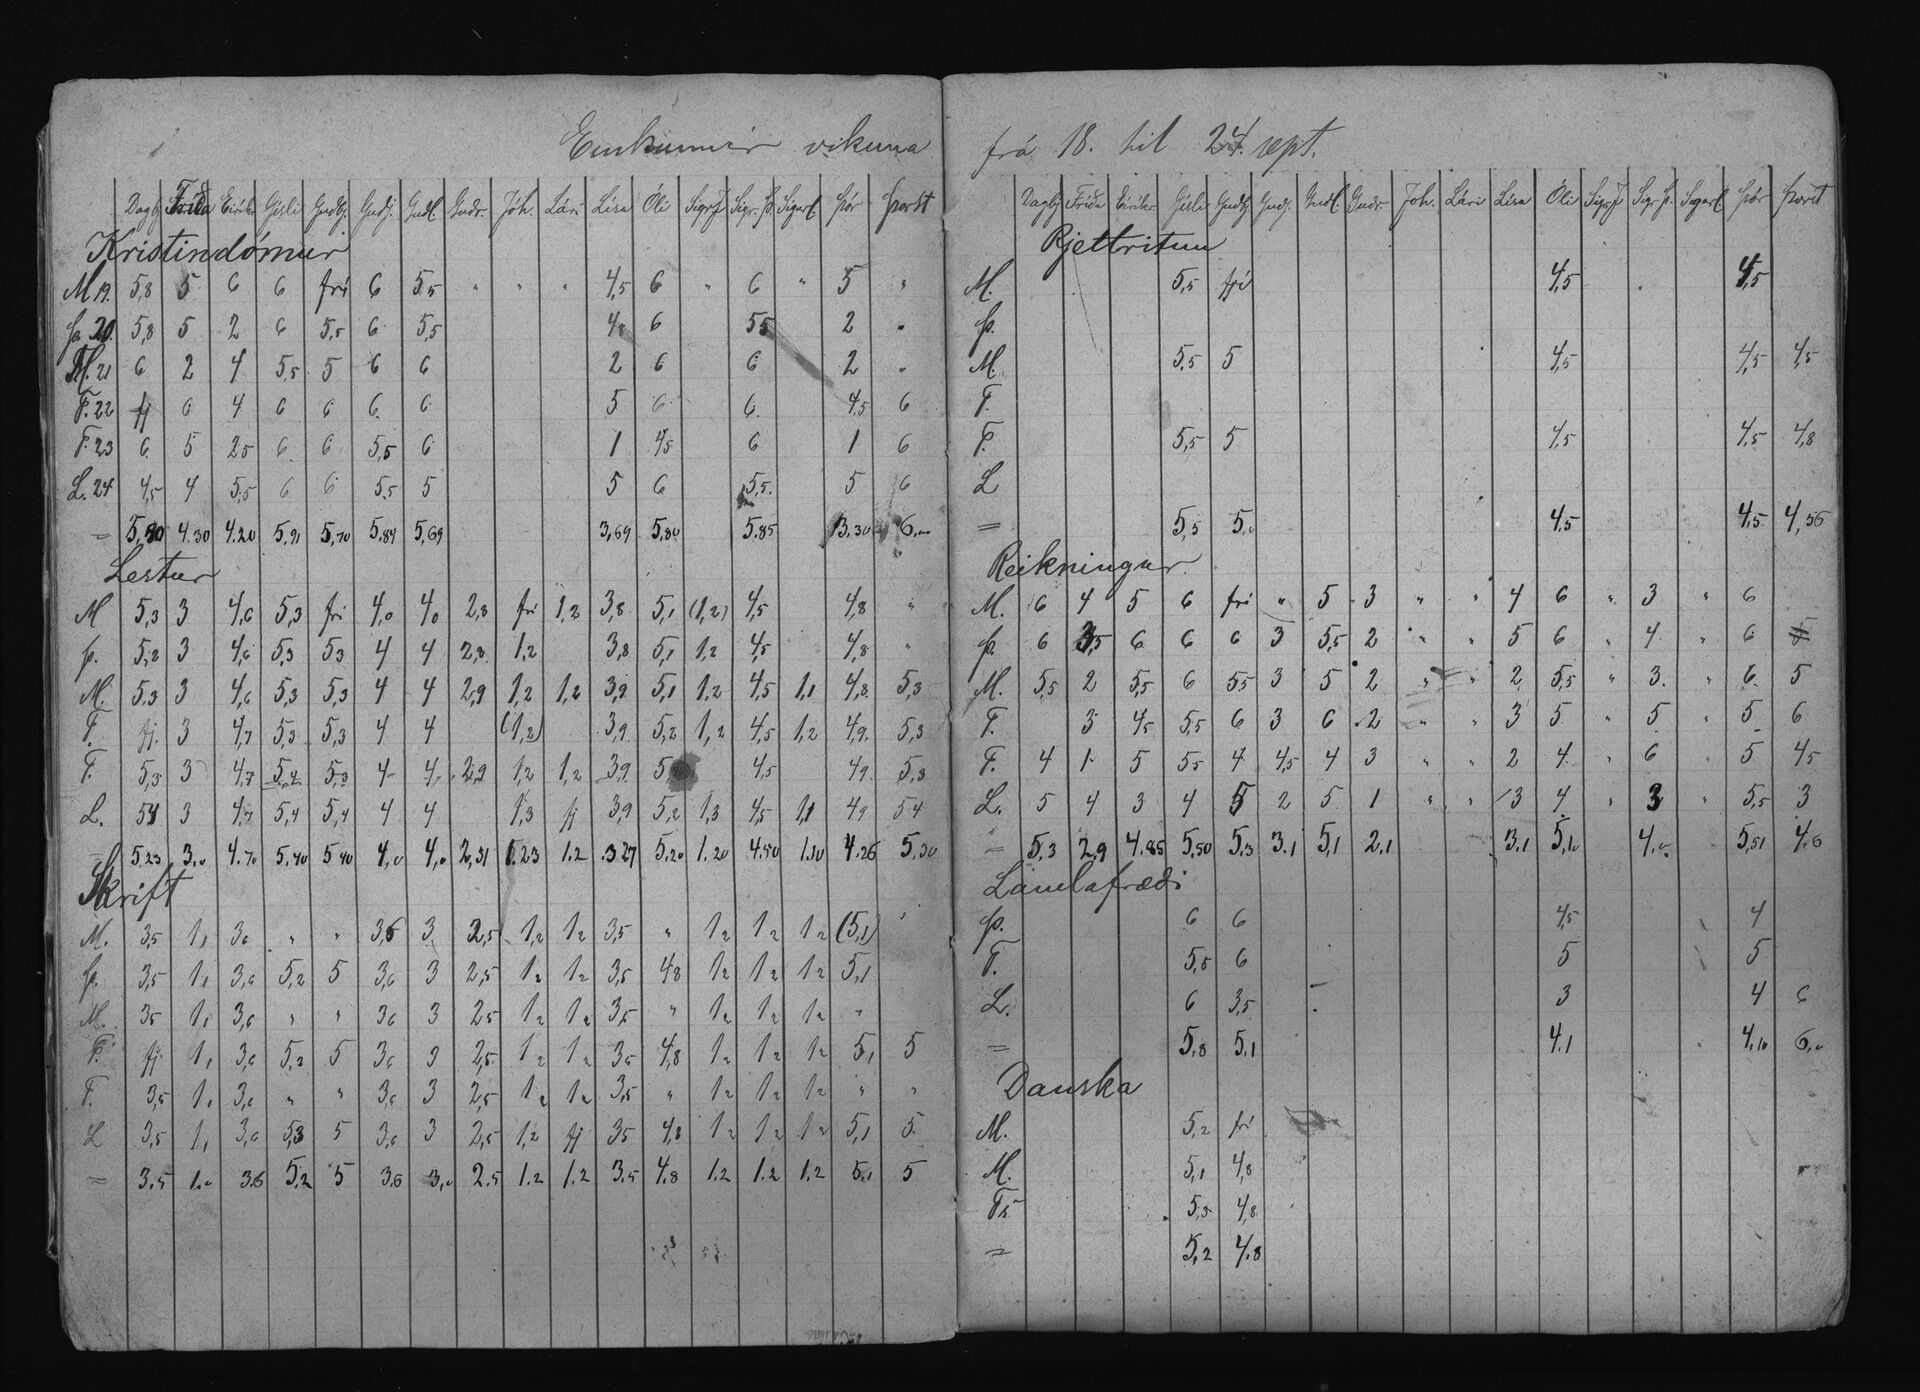 Einkunnir vikuna
Dagbj Fríða Eirikr Gísli Gudbj. Gudj. Gudl. Gudr. Jóh. Lári Lísa Óli SigrJ Sigr. Þ. Sigurl. Þór Þorst
Kristindómur
M 19. 5,8 5 6 6 frí 6 5,5 " " " 4,5 6 " 6 " 5 "
Þ. 20. 5,8 5 2 6 5,5 6 5,5 4,8 6 5,5 2 "
M. 21 6 2 4 5,5 5 6 6 2 6 6 2 "
F. 22 fj 6 4 6 6 6 6 5 6 6 4,5 6
F. 23 6 5 2,5 6 6 5,5 6 1 4,5 6 1 6
L. 24 4,5 4 5,5 6 6 5,5 5 5 6 5,5 5 6
= 4.30 4.20 5,91 5,70 5,84 5,69 3,69 5,80 5.85 3.30
Lestur
M 5,3 3 4,6 5,3 frí 4,0 4,0 2,8 frí 1,2 3,8 5,1 (1,2) 4,5 4,8 "
Þ. 5,2 3 4,6 5,3 5,3 4 4 2,8 1,2 3,8 5,1 1,2 4,5 4,8 "
M. 5,3 3 4,6 5,3 5,3 4 4 2,9 1,2 1,2 3,9 5,1 1,2 4,5 1,1 4,8 5,3
F. fj. 3 4,7 5,3 5,3 4 4 (1,2) 3,9 5,2 1,2 4,5 1,2 4,9 5,3
F. 5,3 3 4,7 5,4 5,3 4 4 2,9 1,2 1,2 3,9 5, 4,5 4,9 5,3
L. 5,4 3 4,7 5,4 5,4 4 4 1,3 fj 3,9 5,2 1,3 4,5 1,1 4,9 5,4
= 5,23 3,0 4.70 5,40 5,40 4,0 4,0 2,31 1.23 1.2 3.27 5,20 1.20 4.50 1.10 4.26 5,30
Skrift
M. 3,5 1, 3,6 " " 3,6 3 2,5 1,2 1,2 3,5 " 1,2 1,2 1,2 (5,1) "
Þ. 3,5 1, 3,6 5,2 5 3,6 3 2,5 1,2 1,2 3,5 4,8 1,2 1,2 1,2 5,1
M. 3,5 1, 3,6 " " 3,6 3 2,5 1,2 1,2 3,5 " 1,2 1,2 1,2 "
F. fj. 1, 3,6 5,2 5 3,6 3 2,5 1,2 1,2 3,5 4,8 1,2 1,2 1,2 5,1 5
F. 3,5 1, 3,6 " " 3,6 3 2,5 1,2 1,2 3,5 " 1,2 1,2 1,2 " "
L 3,5 1, 3,6 5,3 5 3,6 3 2,5 1,2 fj 3,5 4,8 1,2 1,2 1,2 5,1 5
= 3.5 1.0 3.6 5,2 5 3.6 3,0 2.5 1.2 1.2 3.5 4.8 1.2 1.2 1.2 5.1 5
frá 18. til 24. sept.
Dagbj Fríða Eirikr. Gísli Gudbj Gudj. Gudl. Gudr. Joh. Lári Lísa Óli SigrJ Sigr Þ. Sigurl Þór Þorst
Rjettritun
M. 5,5 frí 4,5 4,5
Þ.
M. 5,5 5 4,5 4,5 4,5
F.
F. 5,5 5 4,5 4,5 4,8
L
= 5,5 5,0 4,5 4,5 4,56
Reikningur
M. 6 4 5 6 frí " 5 3 " " 4 6 " 3 " 6
Þ. 6 3,5 6 6 6 3 5,5 2 " " 5 6 " 4 " 6
M. 5,5 2 5,5 6 5,5 3 5 2 " " 2 5,5 " 3 " 6 5
F. 3 4,5 5,5 6 3 6 2 " " 3 5 " 5 " 5 6
F. 4 1 5 5,5 4 4,5 4 3 " " 2 4 " 6 5 4,5
L. 5 4 3 4 5 2 5 1 " " 3 4 " 3 " 5,5 3
= 5,3 2,9 4.85 5,50 5,3 3.1 5,1 2.1 3.1 5,10 4,0 5,51 4.6
Landafræði
Þ. 6 6 4,5 4
F. 5,5 6 5 5
L. 6 3,5 3 4 6
= 5,8 5,1 4.1 4.10 6,0
Danska
M. 5,2 frí
M. 5,1 4,8
Fö 5,3 4,8
= 5,2 4.8